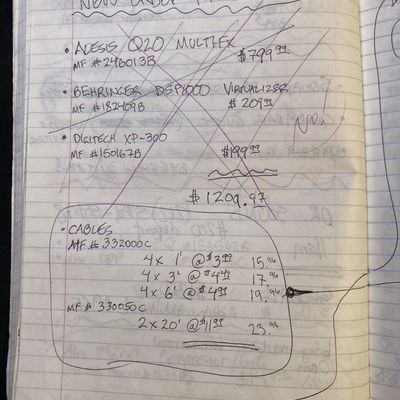 NEW ORDER
• ALESIS Q20 MULTIFX
MF #246013B $799.99
• BEHRINGER DSP1000 VIRTUALIZER
MF #182409B $209.99
NO!
• DIGITECH XP-300
MF #150167B $199.99
$1209.97
• CABLES
MF# 332000C
4x 1' @ $3.99 15.96
4x 3' @ $4.49 17.96
4x 6' @ $4.99 19.96
MF# 330050C
2x20' @ $11.99 23.96